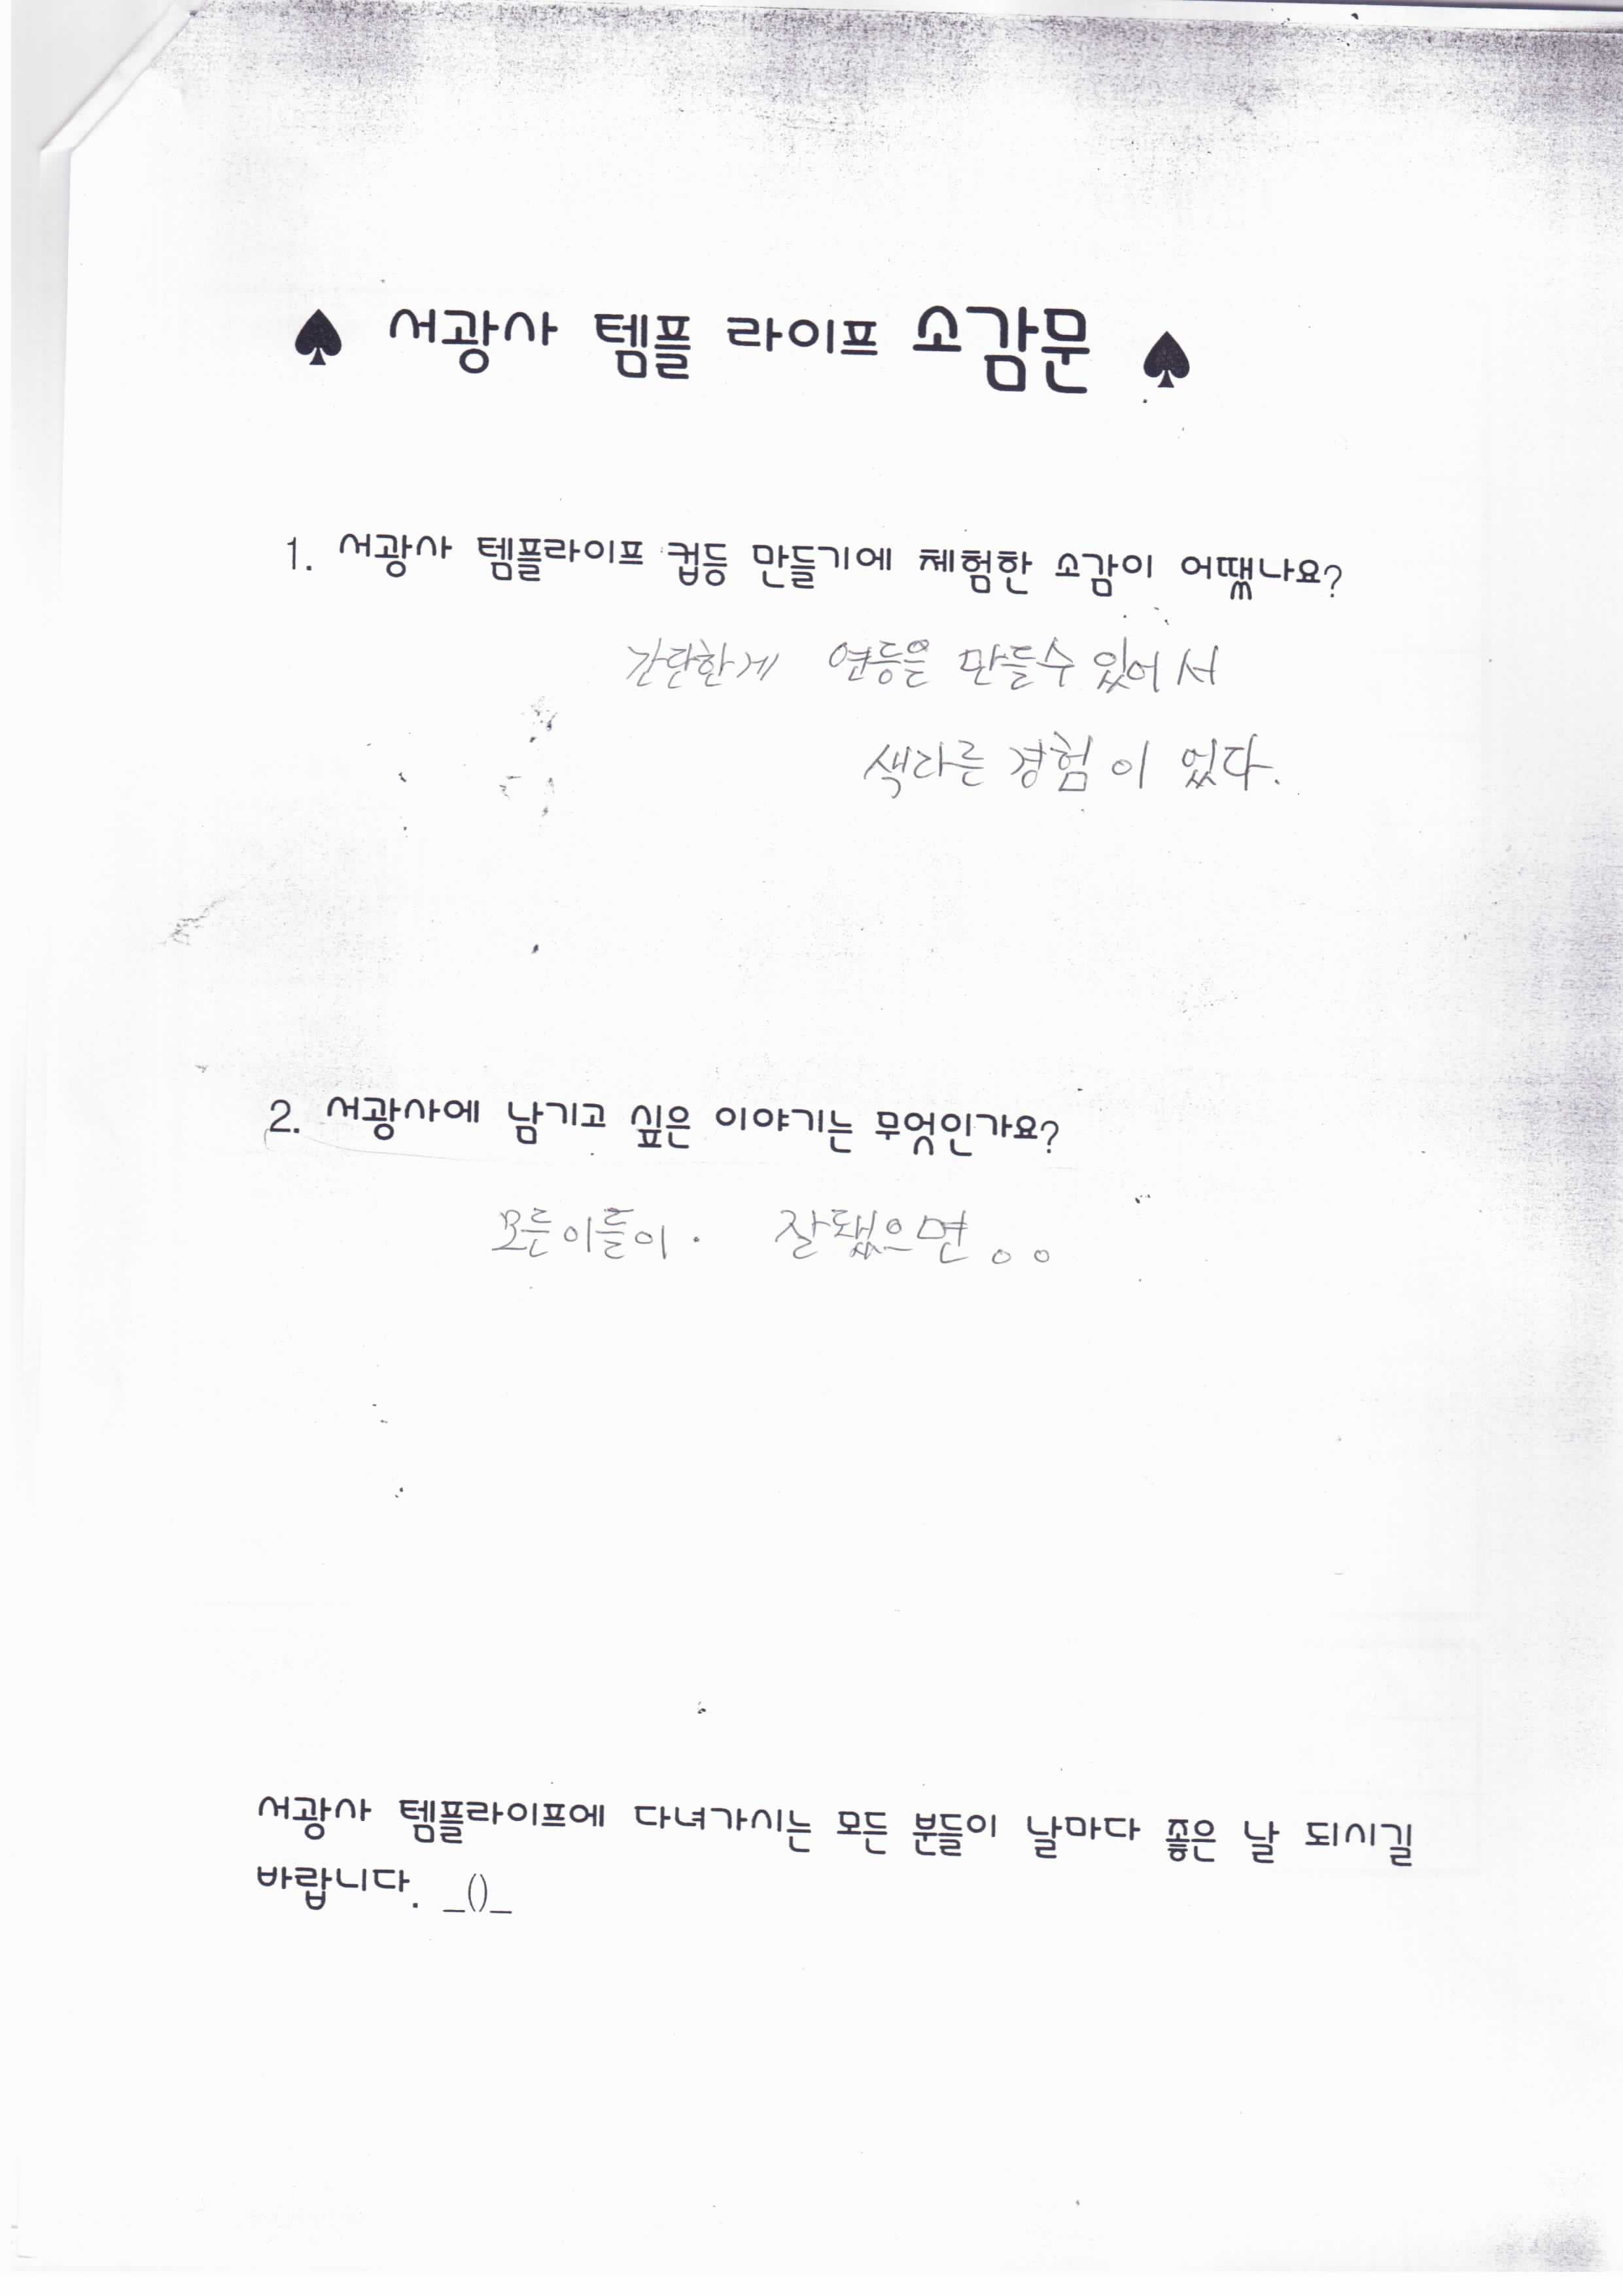 ♠ 서광사 템플 라이프 소감문 ♠
1. 서광사 템플라이프 컵등 만들기에 체험한 소감이 어땠나요?
간란한게 연등을 만들수 있어서
색라른 경험이 었다.
2. 서광사에 남기고 싶은 이야기는 무엇인가요?
모든이들이. 잘됐으면。。
서광사 템플라이프에 다녀가시는 모든 분들이 날마다 좋은 날 되시길
바랍니다. _()_